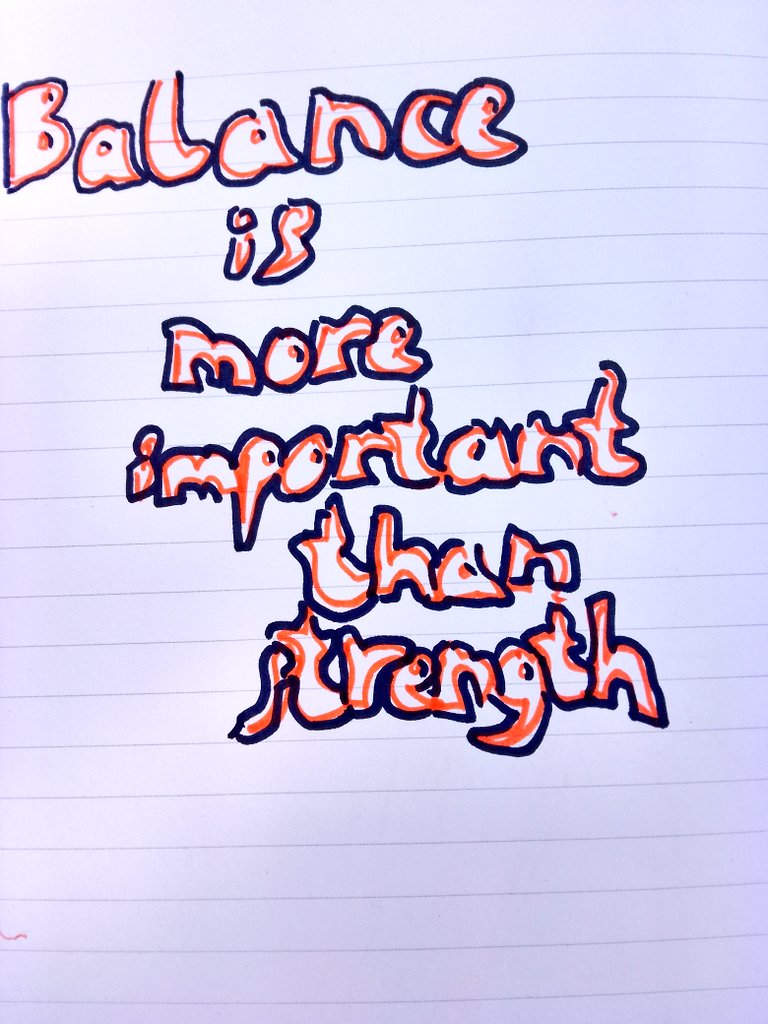 Balance
is
more
important
than
strength